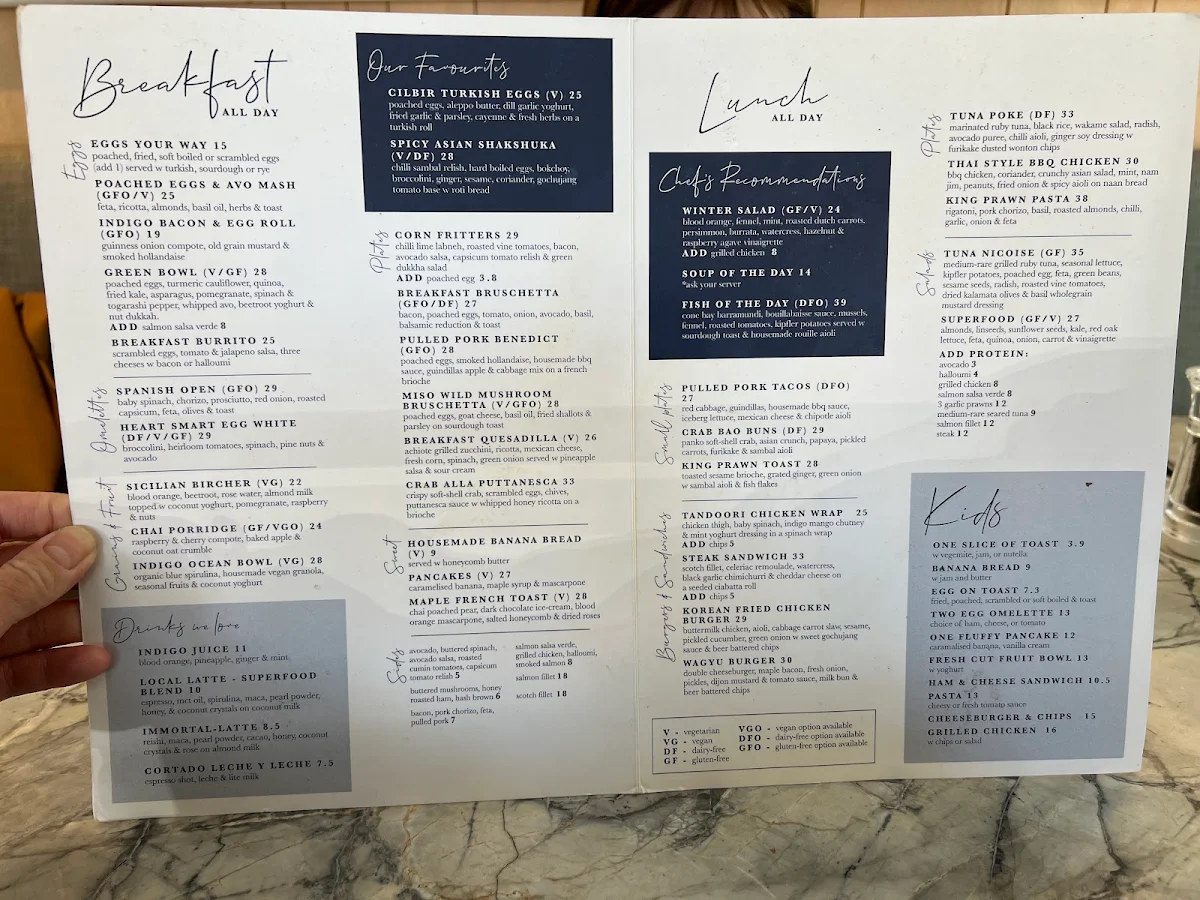 Breakfast
ALL DAY
Eggs
EGGS YOUR WAY 15
poached, fried, soft boiled or scrambled eggs
(add 1) served w turkish, sourdough or rye
POACHED EGGS & AVO MASH
(GFO/V) 25
feta, ricotta, almonds, basil oil, herbs & toast
INDIGO BACON & EGG ROLL
(GFO) 19
guinness onion compote, old grain mustard &
smoked hollandaise
GREEN BOWL (V/GF) 28
poached eggs, turmeric cauliflower, quinoa,
fried kale, asparagus, pomegranate, spinach &
togarashi pepper, whipped avo, beetroot yoghurt &
nut dukkah.
ADD salmon salsa verde 8
BREAKFAST BURRITO 25
scrambled eggs, tomato & jalapeno salsa, three
cheeses w bacon or halloumi
Omelettes
SPANISH OPEN (GFO) 29
baby spinach, chorizo, prosciutto, red onion, roasted
capsicum, feta, olives & toast
HEART SMART EGG WHITE
(DF/V/GF) 29
broccolini, heirloom tomatoes, spinach, pine nuts &
avocado
Grains & Fruit
SICILIAN BIRCHER (VG) 22
blood orange, beetroot, rose water, almond milk
topped w coconut yoghurt, pomegranate, raspberry
& nuts
CHAI PORRIDGE (GF/VGO) 24
raspberry & cherry compote, baked apple &
coconut oat crumble
INDIGO OCEAN BOWL (VG) 28
organic blue spirulina, housemade vegan granola,
seasonal fruits & coconut yoghurt
Drinks we love
INDIGO JUICE 11
blood orange, pineapple, ginger & mint
LOCAL LATTE - SUPERFOOD
BLEND 10
espresso, mct oil, spirulina, maca, pearl powder,
honey, & coconut crystals on coconut milk
IMMORTAL-LATTE 8.5
reishi, maca, pearl powder, cacao, honey, coconut
crystals & rose on almond milk
CORTADO LECHE Y LECHE 7.5
espresso shot, leche & lite milk
Our Favourites
CILBIR TURKISH EGGS (V) 25
poached eggs, aleppo butter, dill garlic yoghurt,
fried garlic & parsley, cayenne & fresh herbs on a
turkish roll
SPICY ASIAN SHAKSHUKA
(V/DF) 28
chilli sambal relish, hard boiled eggs, bokchoy,
broccolini, ginger, sesame, coriander, gochujang
tomato base w roti bread
Plates
CORN FRITTERS 29
chilli lime labneh, roasted vine tomatoes, bacon,
avocado salsa, capsicum tomato relish & green
dukkha salad
ADD poached egg 3.8
BREAKFAST BRUSCHETTA
(GFO/DF) 27
bacon, poached eggs, tomato, onion, avocado, basil,
balsamic reduction & toast
PULLED PORK BENEDICT
(GFO) 28
poached eggs, smoked hollandaise, housemade bbq
sauce, guindillas apple & cabbage mix on a french
brioche
MISO WILD MUSHROOM
BRUSCHETTA (V/GFO) 28
poached eggs, goat cheese, basil oil, fried shallots &
parsley on sourdough toast
BREAKFAST QUESADILLA (V) 26
achiote grilled zucchini, ricotta, mexican cheese,
fresh corn, spinach, green onion served w pineapple
salsa & sour cream
CRAB ALLA PUTTANESCA 33
crispy soft-shell crab, scrambled eggs, chives,
puttanesca sauce w whipped honey ricotta on a
brioche
Sweet
HOUSEMADE BANANA BREAD
(V) 9
served w honeycomb butter
PANCAKES (V) 27
caramelised banana, maple syrup & mascarpone
MAPLE FRENCH TOAST (V) 28
chai poached pear, dark chocolate ice-cream, blood
orange mascarpone, salted honeycomb & dried roses
Sides
avocado, buttered spinach,
avocado salsa, roasted
cumin tomatoes, capsicum
tomato relish 5
buttered mushrooms, honey
roasted ham, hash brown 6
bacon, pork chorizo, feta,
pulled pork 7
salmon salsa verde,
grilled chicken, halloumi,
smoked salmon 8
salmon fillet 18
scotch fillet 18
Lunch
ALL DAY
Chef's Recommendations
WINTER SALAD (GF/V) 24
blood orange, fennel, mint, roasted dutch carrots,
persimmon, burrata, watercress, hazelnut &
raspberry agave vinaigrette
ADD grilled chicken 8
SOUP OF THE DAY 14
*ask your server
FISH OF THE DAY (DFO) 39
cone bay barramundi, bouillabaisse sauce, mussels,
fennel, roasted tomatoes, kipfler potatoes served w
sourdough toast & housemade rouille aioli
Small plates
PULLED PORK TACOS (DFO)
27
red cabbage, guindillas, housemade bbq sauce,
iceberg lettuce, mexican cheese & chipotle aioli
CRAB BAO BUNS (DF) 29
panko soft-shell crab, asian crunch, papaya, pickled
carrots, furikake & sambal aioli
KING PRAWN TOAST 28
toasted sesame brioche, grated ginger, green onion
w sambal aioli & fish flakes
Burgers & Sandwiches
TANDOORI CHICKEN WRAP 25
chicken thigh, baby spinach, indigo mango chutney
& mint yoghurt dressing in a spinach wrap
ADD chips 5
STEAK SANDWICH 33
scotch fillet, celeriac remoulade, watercress,
black garlic chimichurri & cheddar cheese on
a seeded ciabatta roll
ADD chips 5
KOREAN FRIED CHICKEN
BURGER 29
buttermilk chicken, aioli, cabbage carrot slaw, sesame,
pickled cucumber, green onion w sweet gochujang
sauce & beer battered chips
WAGYU BURGER 30
double cheeseburger, maple bacon, fresh onion,
pickles, dijon mustard & tomato sauce, milk bun &
beer battered chips
V - vegetarian
VG - vegan
DF - dairy-free
GF - gluten-free
VGO - vegan option available
DFO - dairy-free option available
GFO - gluten-free option available
Plates
TUNA POKE (DF) 33
marinated ruby tuna, black rice, wakame salad, radish,
avocado puree, chilli aioli, ginger soy dressing w
furikake dusted wonton chips
THAI STYLE BBQ CHICKEN 30
bbq chicken, coriander, crunchy asian salad, mint, nam
jim, peanuts, fried onion & spicy aioli on naan bread
KING PRAWN PASTA 38
rigatoni, pork chorizo, basil, roasted almonds, chilli,
garlic, onion & feta
Salads
TUNA NICOISE (GF) 35
medium-rare grilled ruby tuna, seasonal lettuce,
kipfler potatoes, poached egg, feta, green beans,
sesame seeds, radish, roasted vine tomatoes,
dried kalamata olives & basil wholegrain
mustard dressing
SUPERFOOD (GF/V) 27
almonds, linseeds, sunflower seeds, kale, red oak
lettuce, feta, quinoa, onion, carrot & vinaigrette
ADD PROTEIN:
avocado 3
halloumi 4
grilled chicken 8
salmon salsa verde 8
3 garlic prawns 12
medium-rare seared tuna 9
salmon fillet 12
steak 12
Kids
ONE SLICE OF TOAST 3.9
w vegemite, jam, or nutella
BANANA BREAD 9
w jam and butter
EGG ON TOAST 7.3
fried, poached, scrambled or soft boiled & toast
TWO EGG OMELETTE 13
choice of ham, cheese, or tomato
ONE FLUFFY PANCAKE 12
caramelised banana, vanilla cream
FRESH CUT FRUIT BOWL 13
w yoghurt
HAM & CHEESE SANDWICH 10.5
PASTA 13
cheesy or fresh tomato sauce
CHEESEBURGER & CHIPS 15
GRILLED CHICKEN 16
w chips or salad